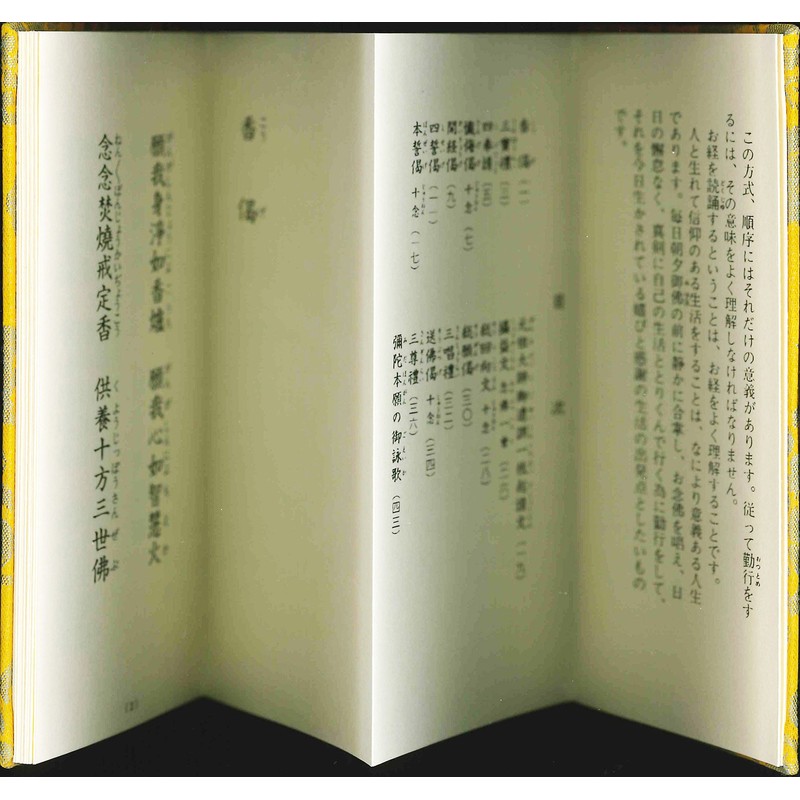 この方式、順序にはそれだけの意義があります。従って勤行をす
るには、その意味をよく理解しなければなりません。
お経を読誦するということは、お経をよく理解することです。
人と生れて信仰のある生活をすることは、なにより意義ある人生
であります。毎日朝夕御佛の前に静かに合掌し、お念佛を唱え、日
日の懈怠なく、真剣に自己の生活ととりくんで行く為に勤行をして、
それを今日生かされている喜びと感謝の生活の出発点としたいもの
です。
目次
香偈（一）
三寶禮（三）
四奉請（五）
懺悔偈 十念（七）
開経偈（九）
四誓偈（一一）
本誓偈 十念（一七）
元祖大師御遺訓一枚起請文（一九）
攝益文 念佛一會（二六）
総回向文 十念（二八）
総願偈（三〇）
三唱禮（三二）
送佛偈 十念（三四）
三尊禮（三八）
彌陀本願の御詠歌（四三）
香偈
願我身淨如香爐 願我心如智慧火
念念焚燒戒定香 供養十方三世佛
(2)